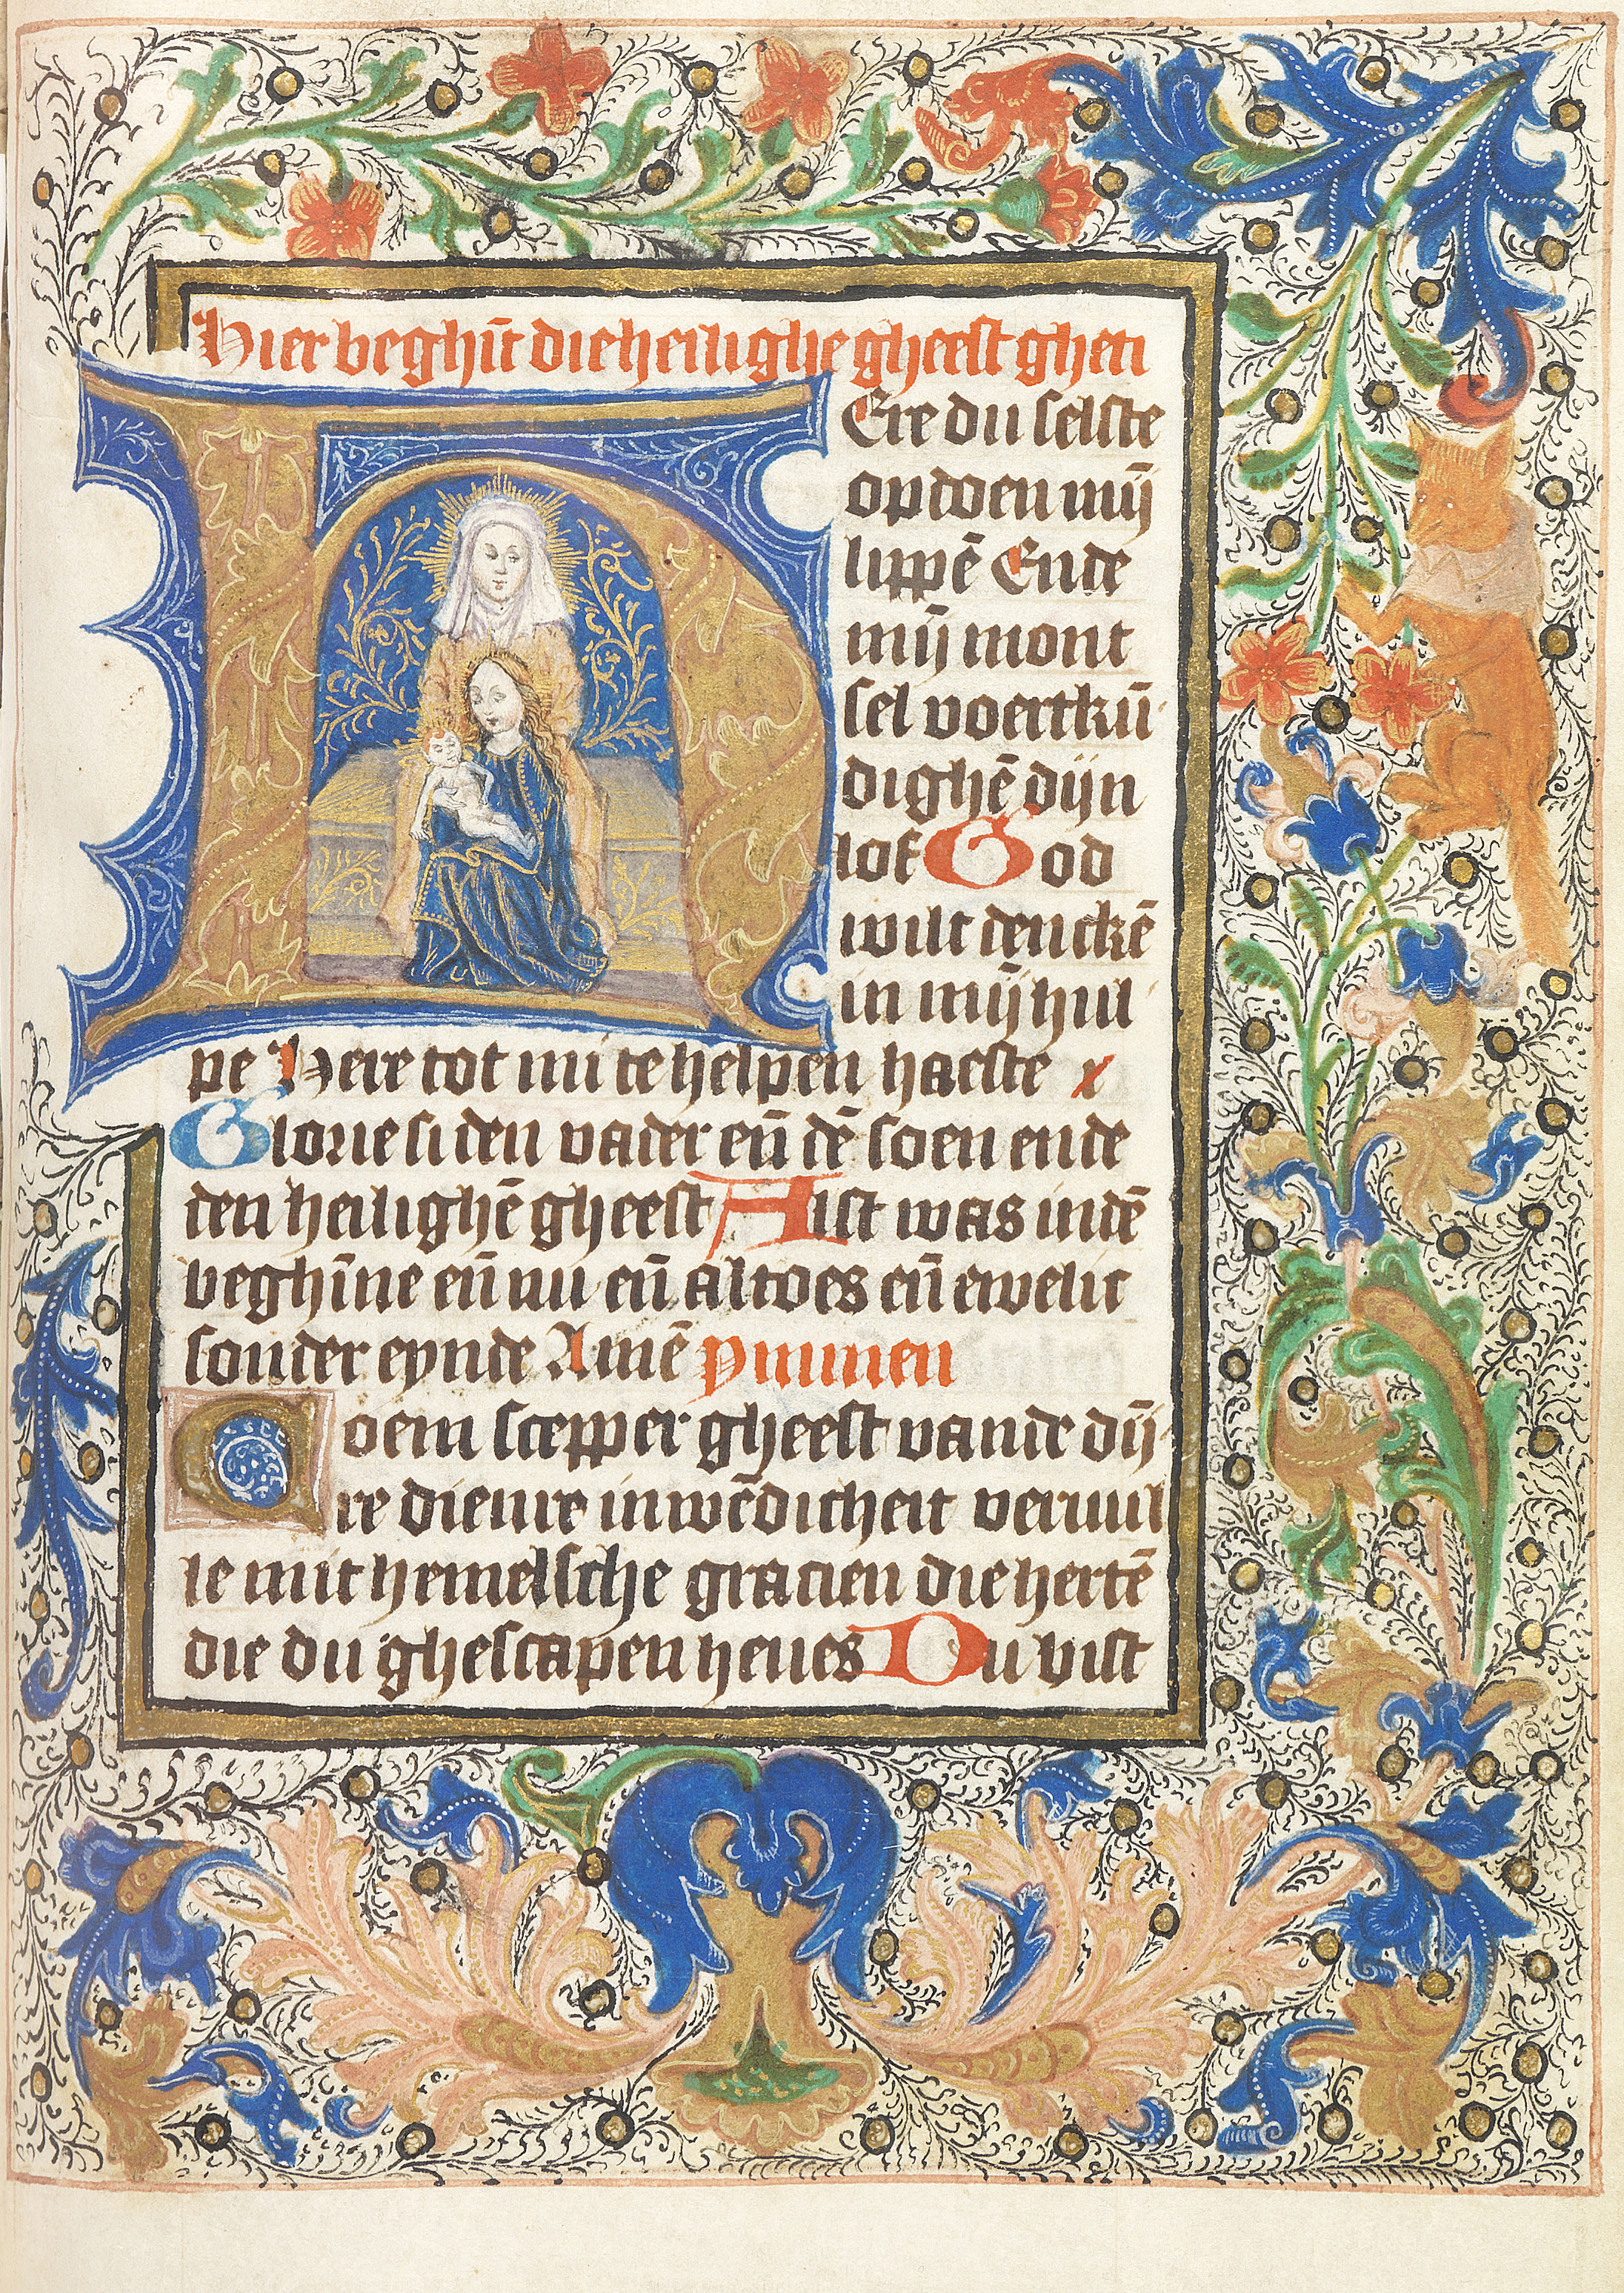 Hier beghīt die heilighe gheest gheti
HEre du selste
opdoen mȳ
lippē Ende
mȳ mont
sel voertkū
dighē dijn
lof God
wilt denckē
in mȳ hul
pe Here tot mi te helpen haeste
Glorie si den vader eñ dē soen ende
den heilighē gheest Alst was indē
beghīne eñ nu eñ altoes eñ ewelic
sonder eynde Amē ymnnen
Coem scepper gheest vande dij
re dienre inwēdicheit vervul
le mit hemelsche gracien die hertē
die du ghescapen heves Du bist